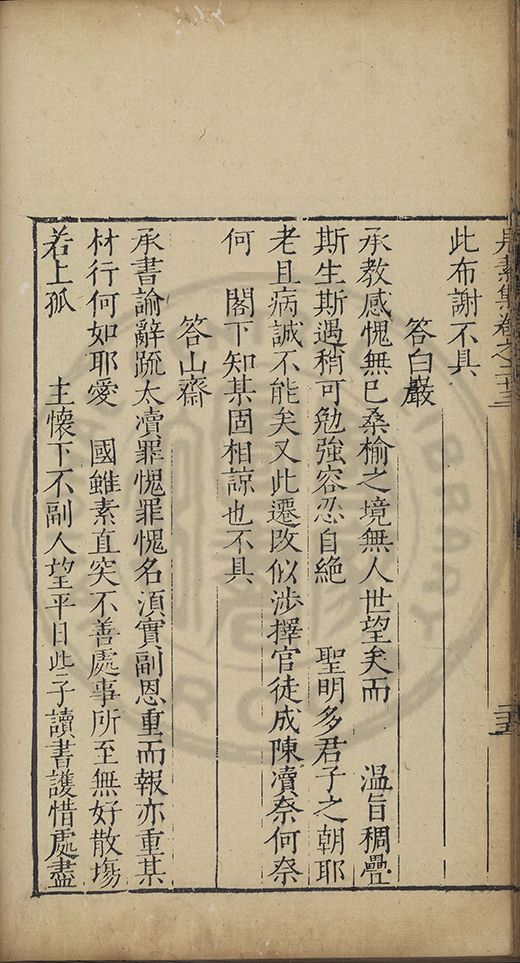 見素集卷之二十三
此布謝不具
答白巖
承教感愧無已桑榆之境無人世望矣而 溫旨稠疊
斯生斯遇稍可勉強容忍自絶 聖明多君子之朝耶
老且病誠不能矣又此遷改似涉擇官徒成陳瀆奈何奈
何 閣下知某固相諒也不具
答山齋
承書諭辭疏太瀆罪愧罪愧名湏實副恩重而報亦重某
材行何如耶愛 國雖素直突不善處事所至無好散塲
若上孤 主懷下不副人望平日些子讀書護惜處盡